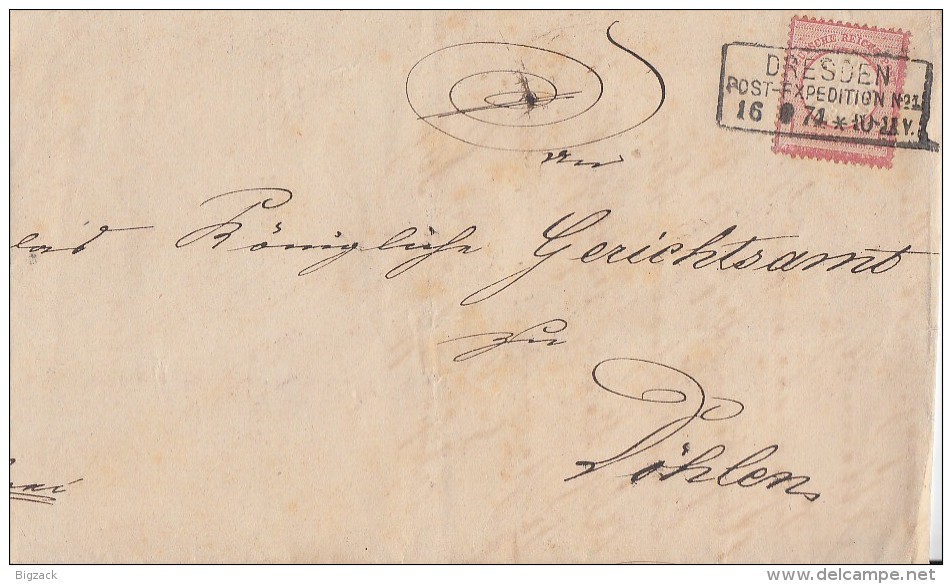 DEUTSCHE REICHS
DRESDEN
POST-EXPEDITION No 1
16 8 74 * 10-11 V.
An
das Königliche Gerichtsamt
zu
Döhlen
Bigzack
www.delcampe.net